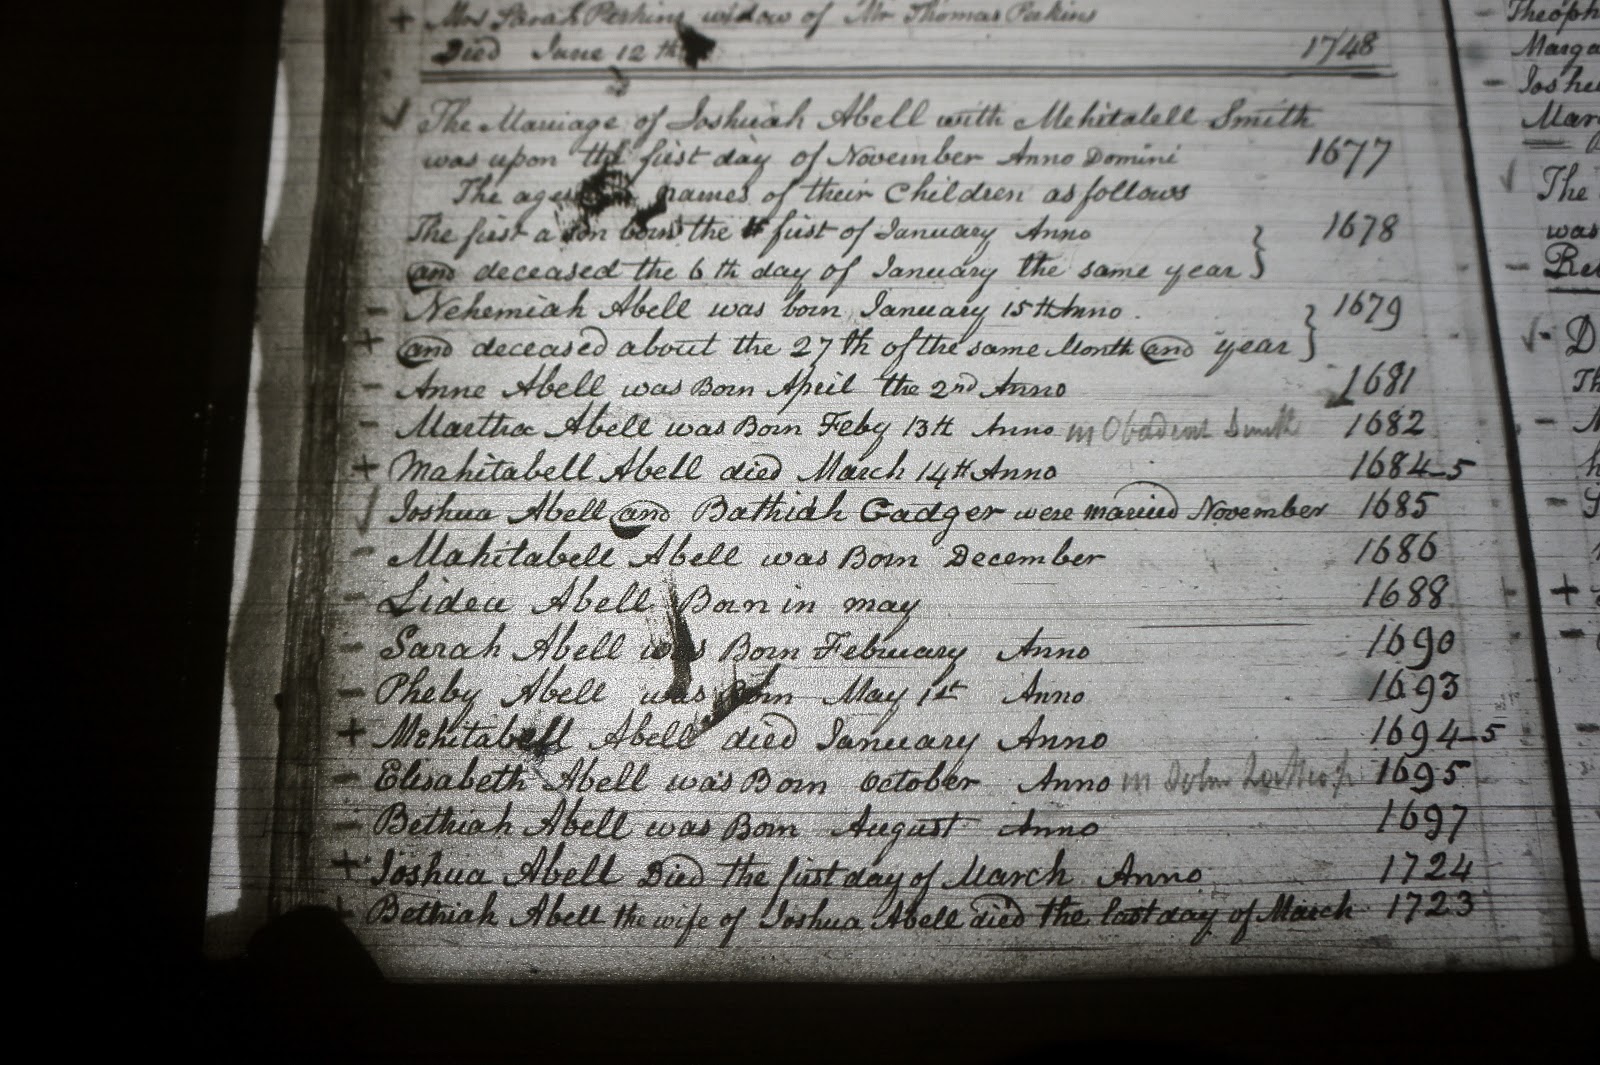 Mrs Sarah Perkins widow of Mr Thomas Perkins
Died June 12th 1748
The Marriage of Joshuah Abell with Mehitabell Smith
was upon the first day of November Anno Domini 1677
The ages names of their Children as follows
The first a son born the first of January Anno 1678
and deceased the 6th day of January the same year
Nehemiah Abell was born January 15th Anno 1679
and deceased about the 27th of the same Month and year
Anne Abell was Born April the 2nd Anno 1681
Martha Abell was Born Feby 13th Anno m Obadiah Smith 1682
Mahitabell Abell died March 14th Anno 1684-5
Joshua Abell and Bathiah Gadger were married November 1685
Mahitabell Abell was Born December 1686
Lidea Abell Born in may 1688
Sarah Abell was Born February Anno 1690
Pheby Abell was Born May 1st Anno 1693
Mehitabell Abell died January Anno 1694-5
Elisabeth Abell was Born October Anno m John Lathrop 1695
Bethiah Abell was Born August Anno 1697
Joshua Abell Died the first day of March Anno 1724
Bethiah Abell the wife of Joshua Abell died the last day of March 1723
Joshu
The
was
D